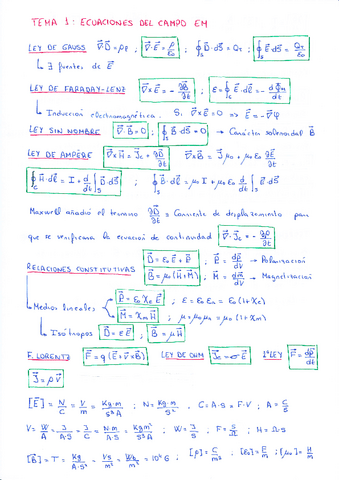 TEMA 1: ECUACIONES DEL CAMPO EM
LEY DE GAUSS ∇·D = ρF ; ∇·E = ρ/ε₀ ; ∮s D·dS = QF ; ∮s E·dS = QT/ε₀
↳ ∃ fuentes de E
LEY DE FARADAY-LENZ ∇×E = -∂B/∂t ; ε = ∮s E·dl = - dΦm/dt
↳ Inducción electromagnética. Si ∇×E = 0 ⇒ E = -∇φ
LEY SIN NOMBRE ∇·B = 0 ; ∮s B·dS = 0 → Carácter solenoidal B
LEY DE AMPÈRE ∇×H = Jc + ∂D/∂t ∇×B = J μ₀ + μ₀ε₀ ∂E/∂t
∮c H·dl = I + d/dt ∫s D·dS ; ∮s B·dl = μ₀I + μ₀ε₀ d/dt ∫s E·dS
Maxwell añadió el término ∂D/∂t ≡ Corriente de desplazamiento para
que se verificara la ecuación de continuidad ∇·Jc = -∂ρ/∂t
RELACIONES CONSTITUTIVAS D = ε₀E + P ; P = dp/dV → Polarización
B = μ₀(H+M) ; M = dm/dV → Magnetización
↳ Medios lineales P = ε₀χeE ; ε = ε₀εr = ε₀(1+χe)
M = χmH ; μ = μ₀μr = μ₀(1+χm)
↳ Isótropos D = εE ; B = μH
F. LORENTZ F = q(E+v×B) LEY DE OHM Jc = σE 2ª LEY F = dp/dt
J = ρv
[E] = N/C = V/m = Kg·m/s³A ; N = Kg·m/s² , C = A·s = F·V ; A = C/s
V = W/A = J/A·s = J/C = N·m/A·s = Kg m²/s³A ; W = J/s ; F = s/Ω ; H = Ω·s
[B] = T = Kg/A·s² = Vs/m² = Wb/m² = 10⁴ G ; [ρ] = C/m³ ; [ε₀] = F/m ; [μ₀] = H/m